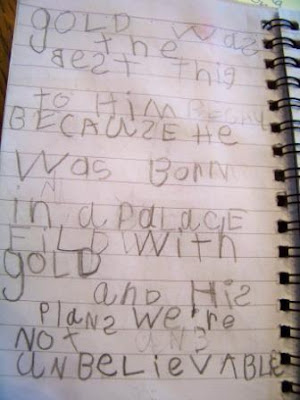 gOLD Was
the
BEST THIg
TO HIM BECAU
BECAUSE He
Was BORN
in a PALACE
FILD WITH
gOLD
and His
PLANS We're
NOT AN3
UNBELIEVABLE